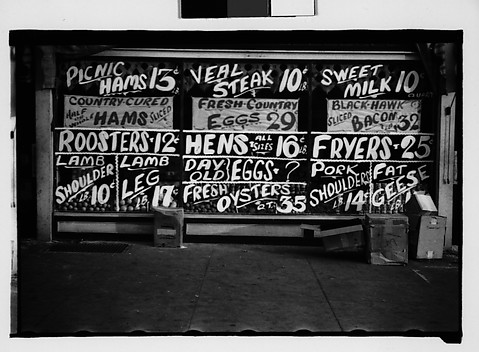 PICNIC HAMS 13¢ LB
VEAL STEAK 10¢ LB
SWEET MILK 10
COUNTRY-CURED HALF OR WHOLE HAMS SLICED
FRESH COUNTRY EGGS 29
BLACK-HAWK SLICED BACON 32
ROOSTERS-12¢ LB
HENS-ALL SIZES 16¢ LB
FRYERS-25¢
LAMB SHOULDER LB 10¢
LAMB LEG LB 17¢
DAY OLD EGGS-?
FRESH OYSTERS QT. 35
PORK SHOULDERS LB 14¢
FAT GEESE LB